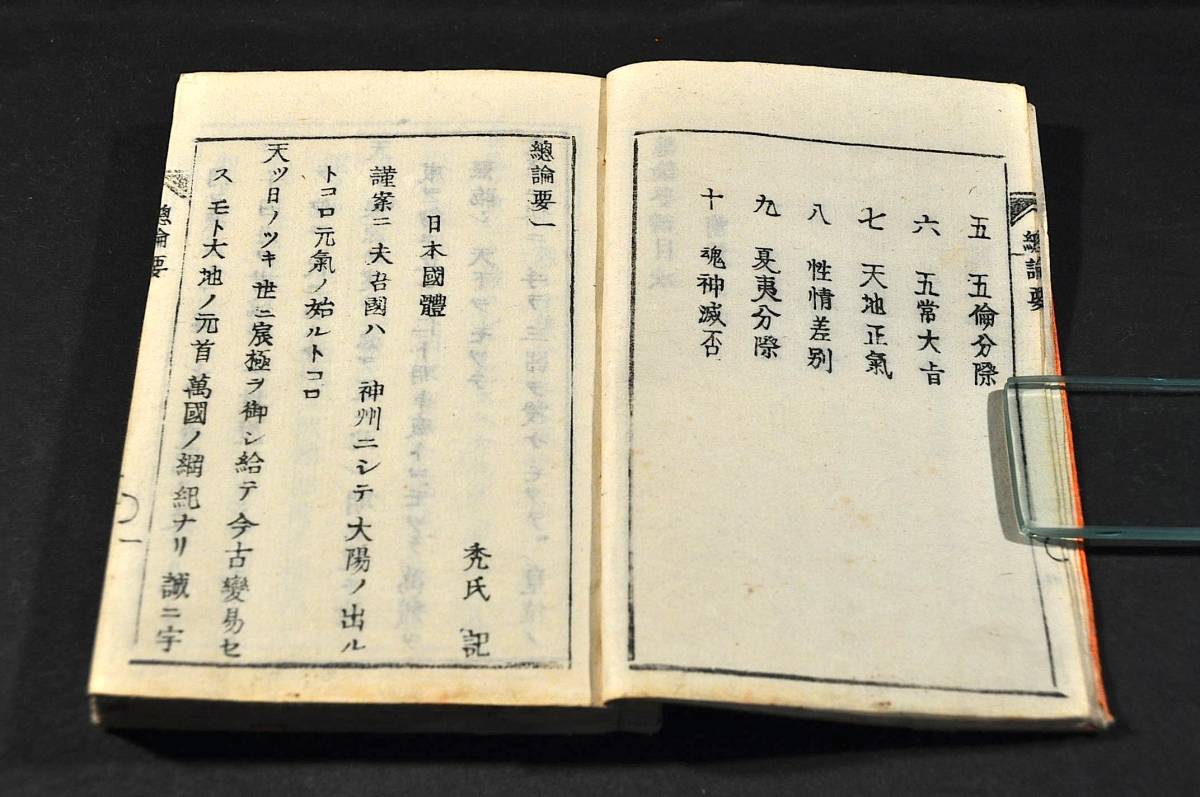 總論要
五 五倫分際
六 五常大旨
七 天地正氣
八 性情差別
九 夏夷分際
十 魂神滅否
總論要一
禿氏 記
日本國體
謹案ニ夫吾國ハ 神州ニシテ大陽ノ出ル
トコロ元氣ノ始ルトコロ
天ツ日ノツキ世ニ宸極ヲ御シ給テ今古變易セ
スモト大地ノ元首萬國ノ綱紀ナリ誠ニ宇
總論要
一